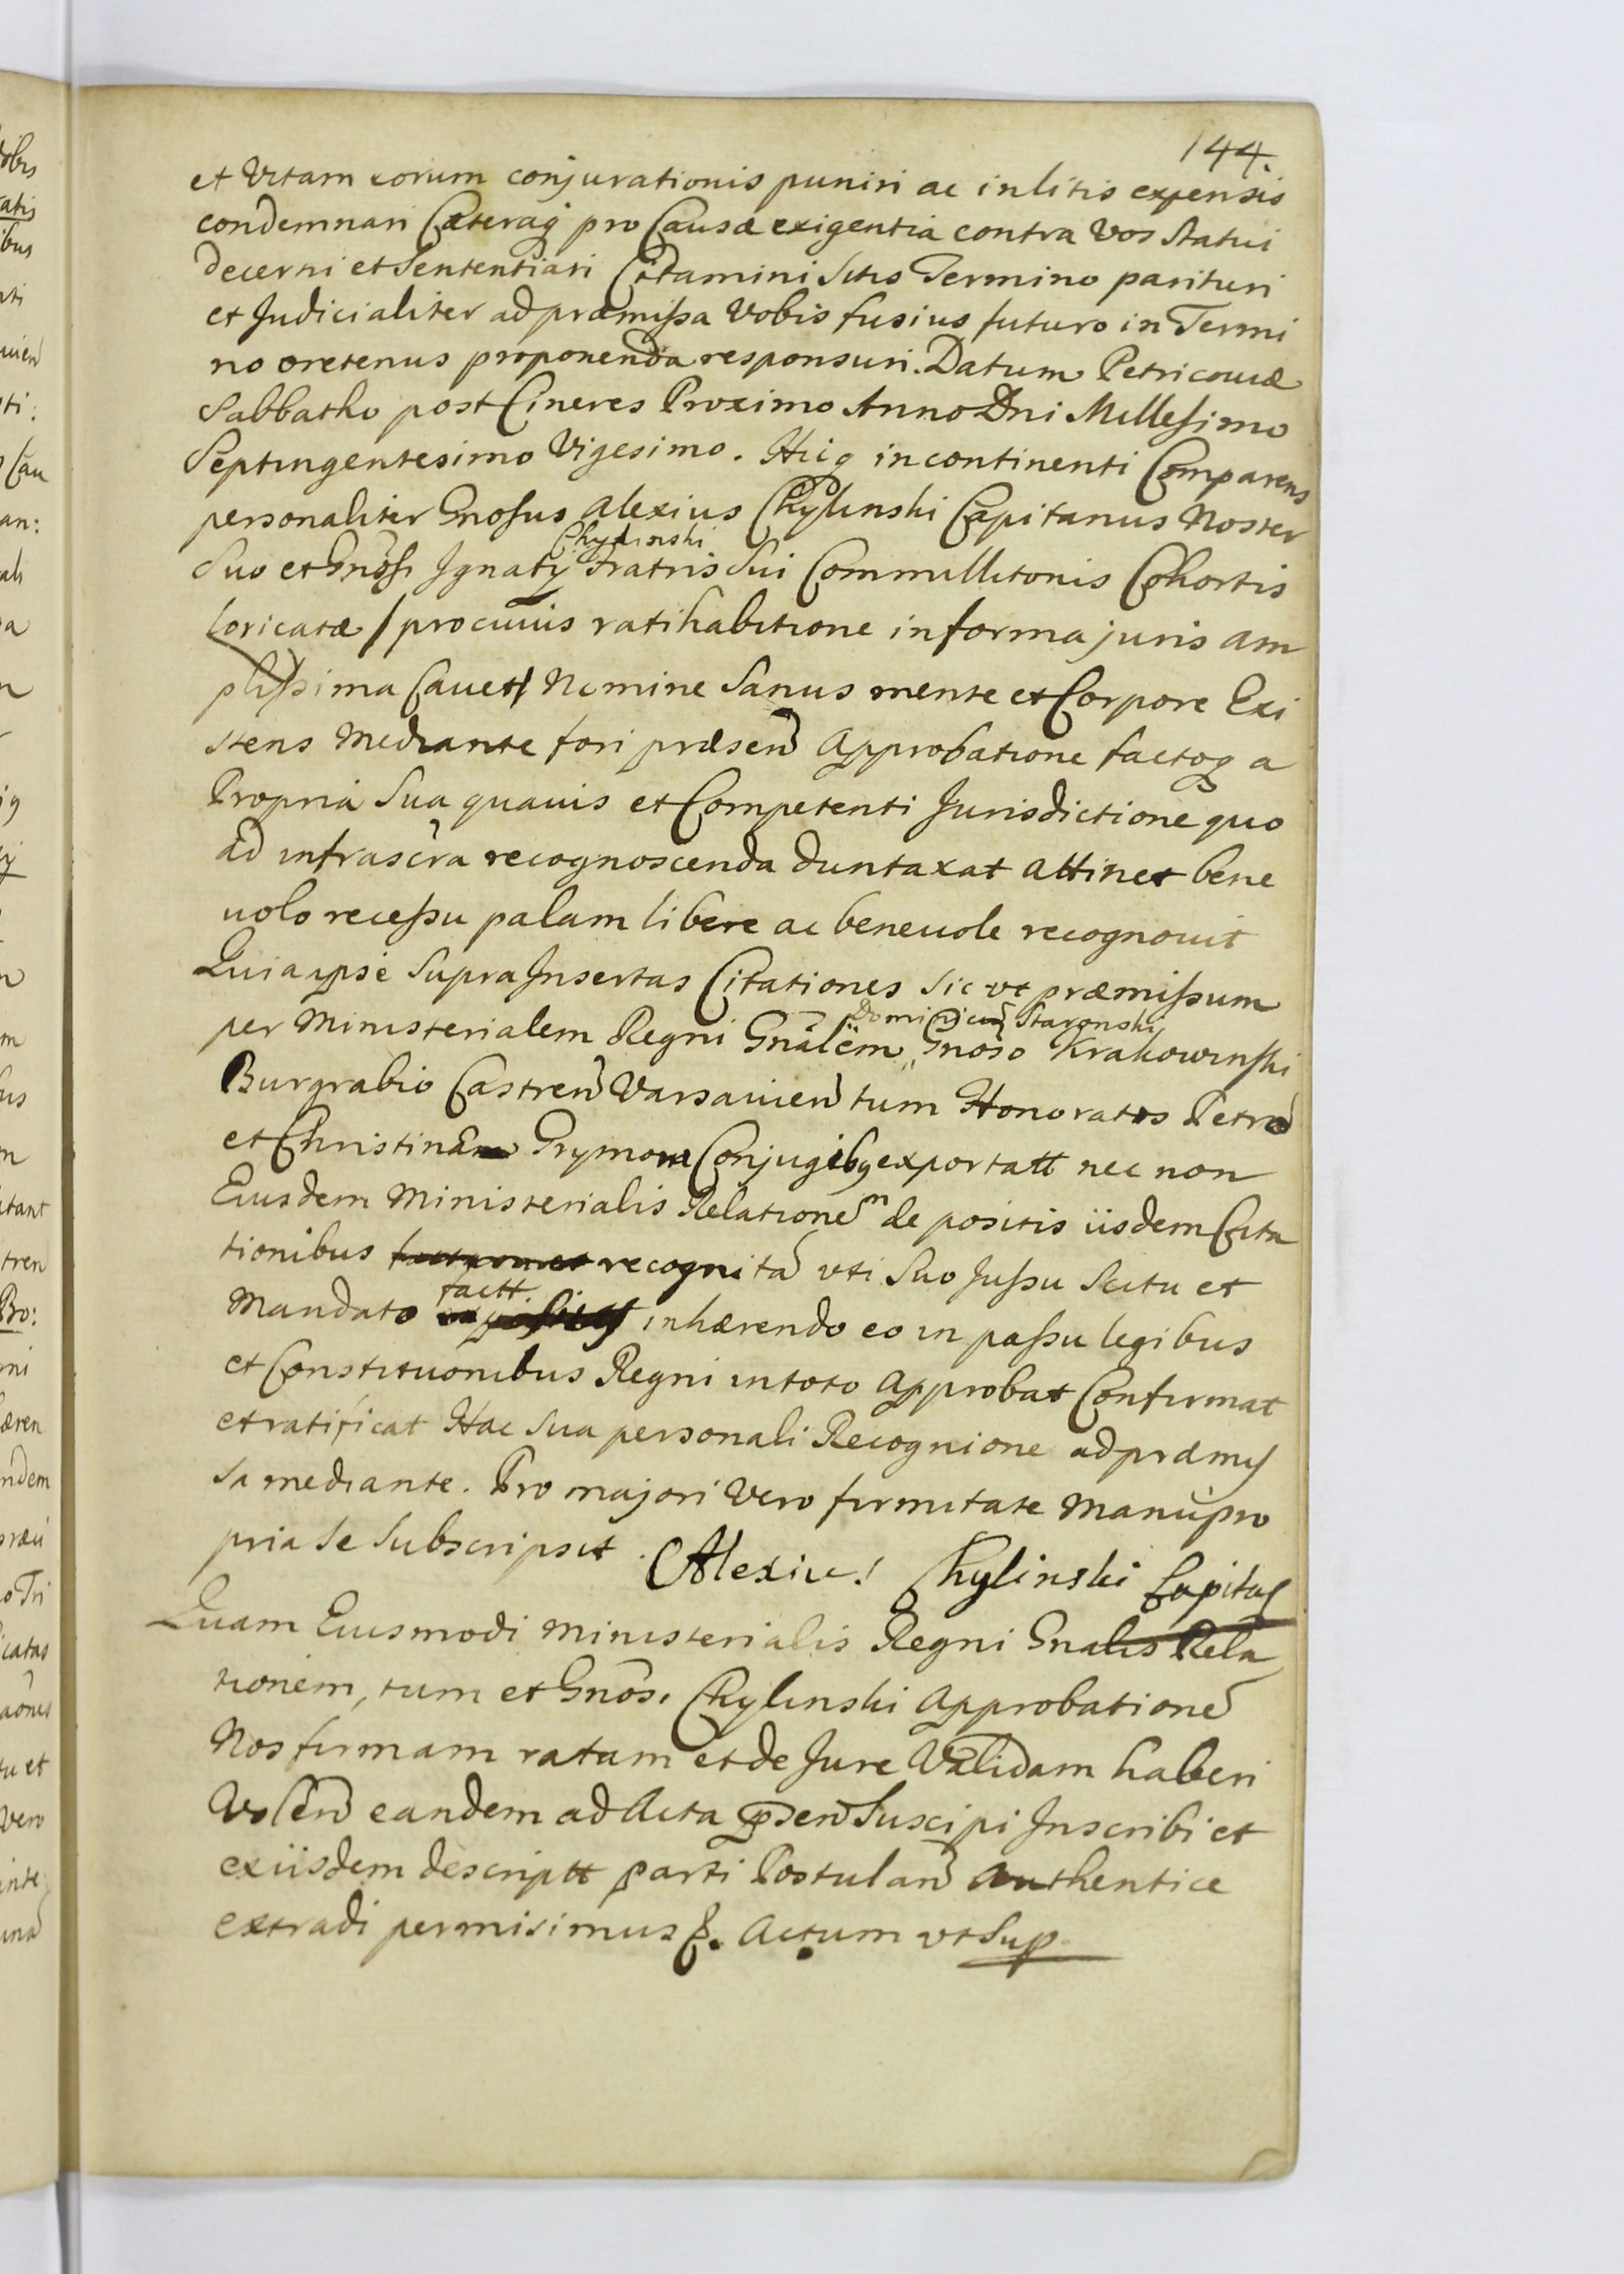 144.
et Vitam eorum conjurationis puniri ac in litis expensis
condemnari Cæteraq pro Causæ exigentia contra Vos Statui
decerni et Sententiari Citamini Sitis Termino parituri
et Judicialiter ad præmissa Vobis fusius futuro in Termi
no oretenus proponenda responsuri. Datum Petricoviæ
Sabbatho post Cineres Proximo Anno Dni Millesimo
Septingentesimo Vigesimo. Hicq in continenti Comparens
personaliter Gnosus Alexius Chylinski Capitanus Noster
Chylinski
Suo et Gnosi Ignatij Fratris Sui Commilitonis Cohortis
loricatæ / pro cuius ratihabitione in forma juris am
plissima Cavet / Nomine Sanus mente et Corpore Exi
stens Mediante fori præsen Approbatione factoq a
Propria Sua quavis et Competenti Jurisdictione quo
ad infrascra recognoscenda duntaxat attinet bene
volo recessu palam libere ac benevole recognovit
Quia ipse Supra Insertas Citationes Sic ut præmissum
Dominicum Staronski
per Ministerialem Regni Gnalem Gnoso Krakowinski
Burgrabio Castren Varsavien tum Honoratos Petro
et Christinam Grymow Conjugibq exportatt nec non
Eiusdem Ministerialis Relationem de positis iisdem Cita
tionibus recognita uti Suo Jussu Scitu et
factt.
Mandato inhærendo eo in passu legibus
et Constitutionibus Regni in toto Approbat Confirmat
et ratificat Hac Sua personali Recognione ad præmis
sa mediante. Pro majori Vero firmitate Manu pro
pria Se Subscripsit. Alexius Chylinski Capitas
Quam Eiusmodi Ministerialis Regni Gnalis Rela
tionem, tum et Gnosi Chylinski Approbatione
Nos firmam ratam et de Jure Validam haberi
Volen eandem ad Acta pnsen Suscipi Inscribi et
ex iisdem descriptt parti Postulan Authentice
extradi permisimus &. Actum ut Sup